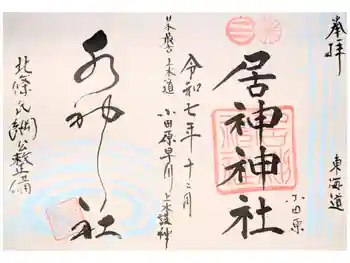 奉拝
東海道
小田原
居神神社
令和七年十二月
日本最古上水道 小田原早川上水護神
水神社
北條氏綱公敷設